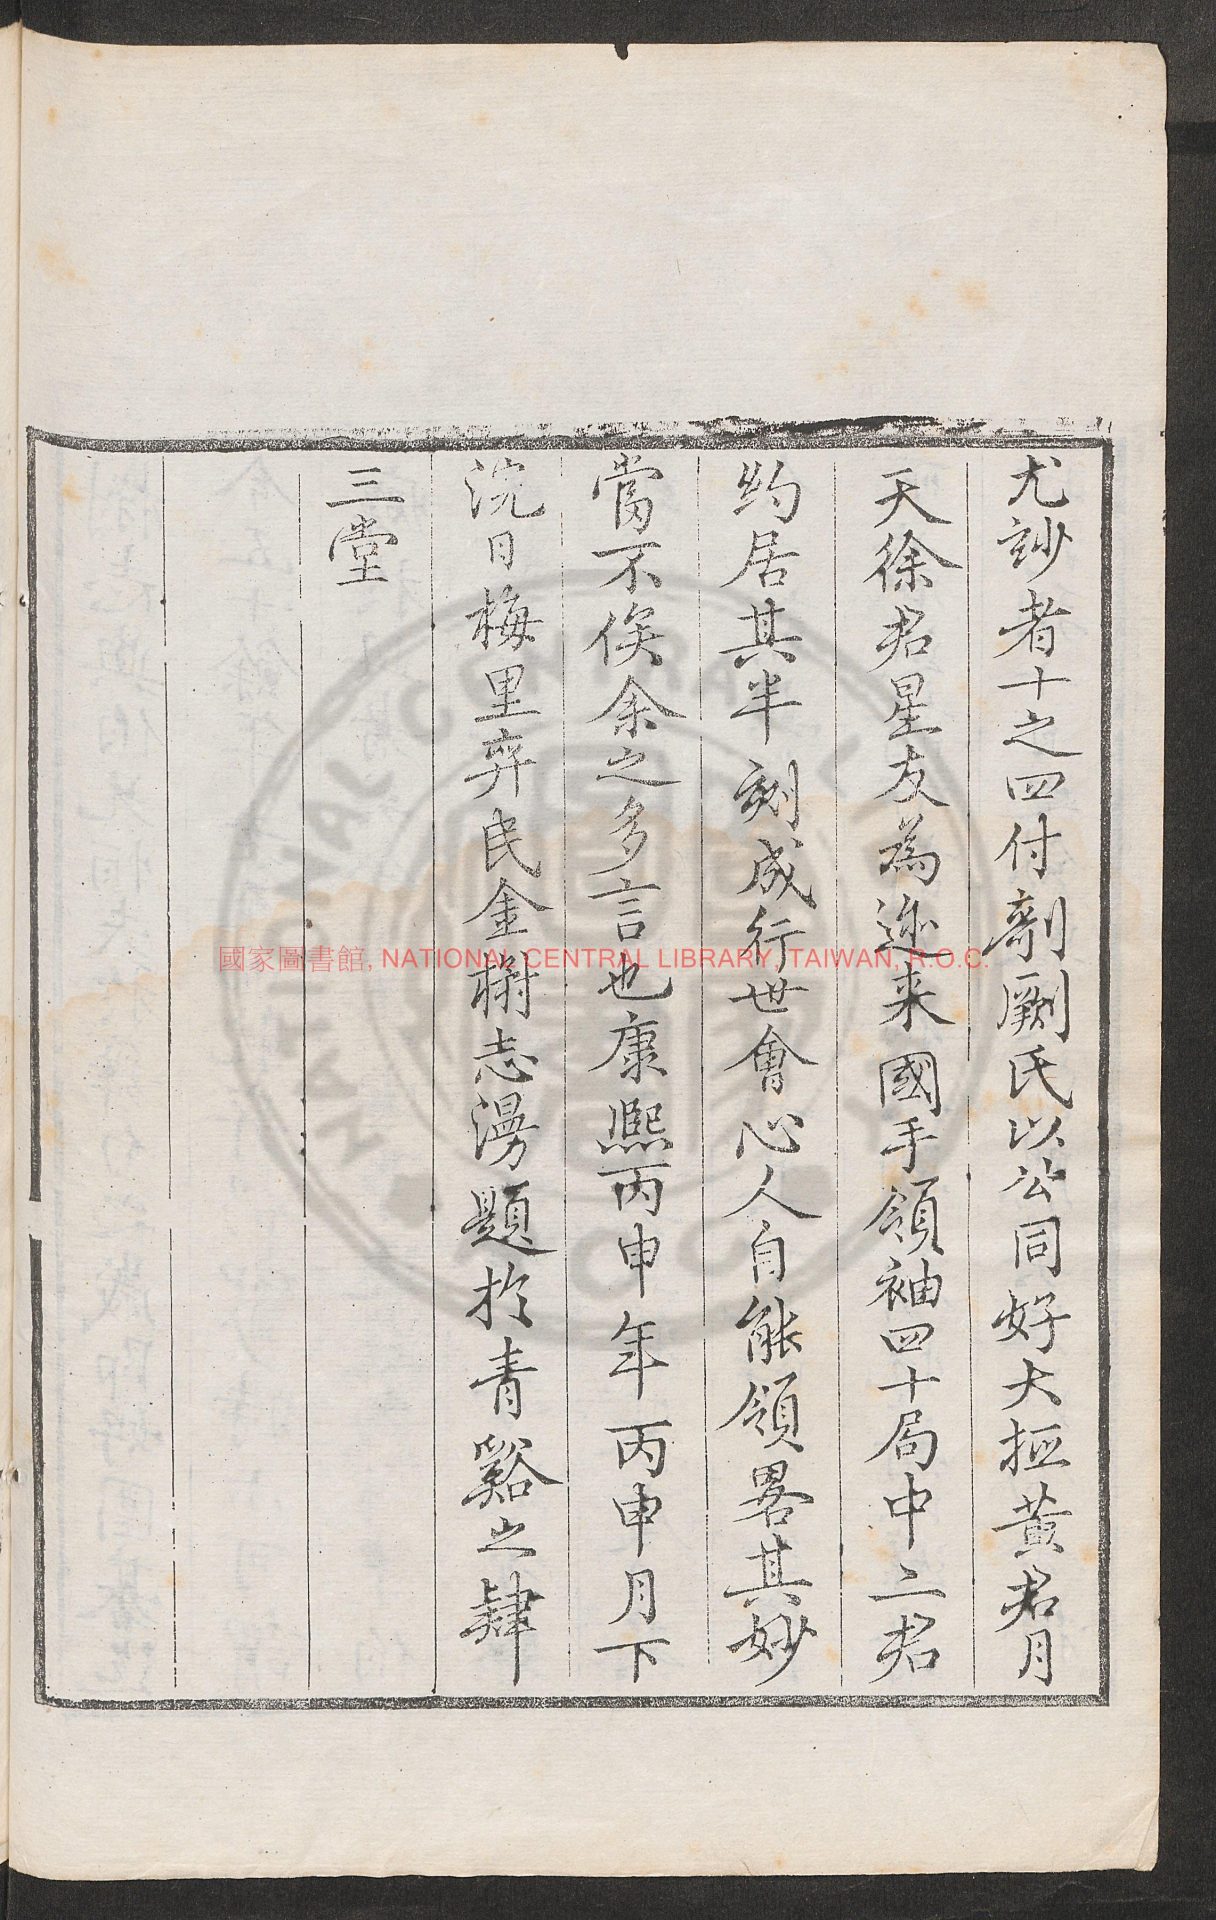 尤玅者十之四付剞劂氏以公同好大抵黄君月
天徐君星友為迩来國手領袖四十局中二君
約居其半刻成行世會心人自能領畧其妙
當不俟余之多言也康熙丙申年丙申月下
浣日梅里弈民金楙志漫題於青谿之肆
三堂
國家圖書館, NATIONAL CENTRAL LIBRARY, TAIWAN, R.O.C.